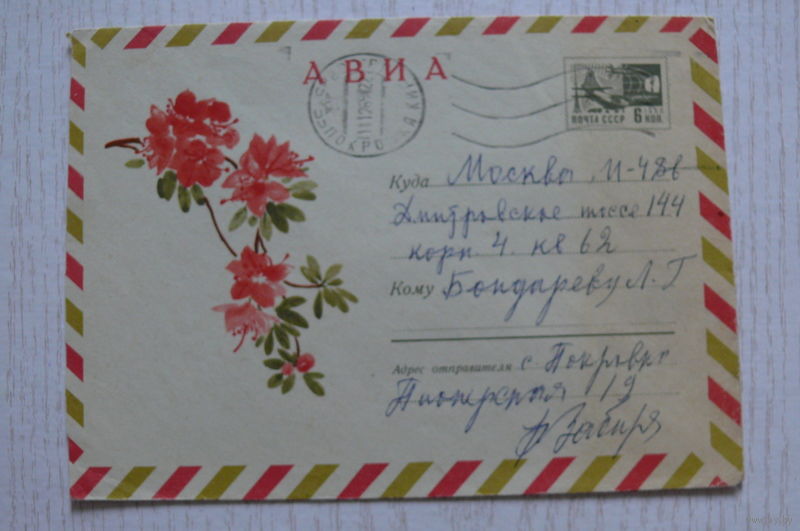 АВИА
ПОЧТА СССР 6 КОП.
Куда Москва, И-486
Дмитровское шоссе 144
корп 4. кв 62
Кому Бондареву Л.Г
Адрес отправителя с. Покровка
Пионерская 19